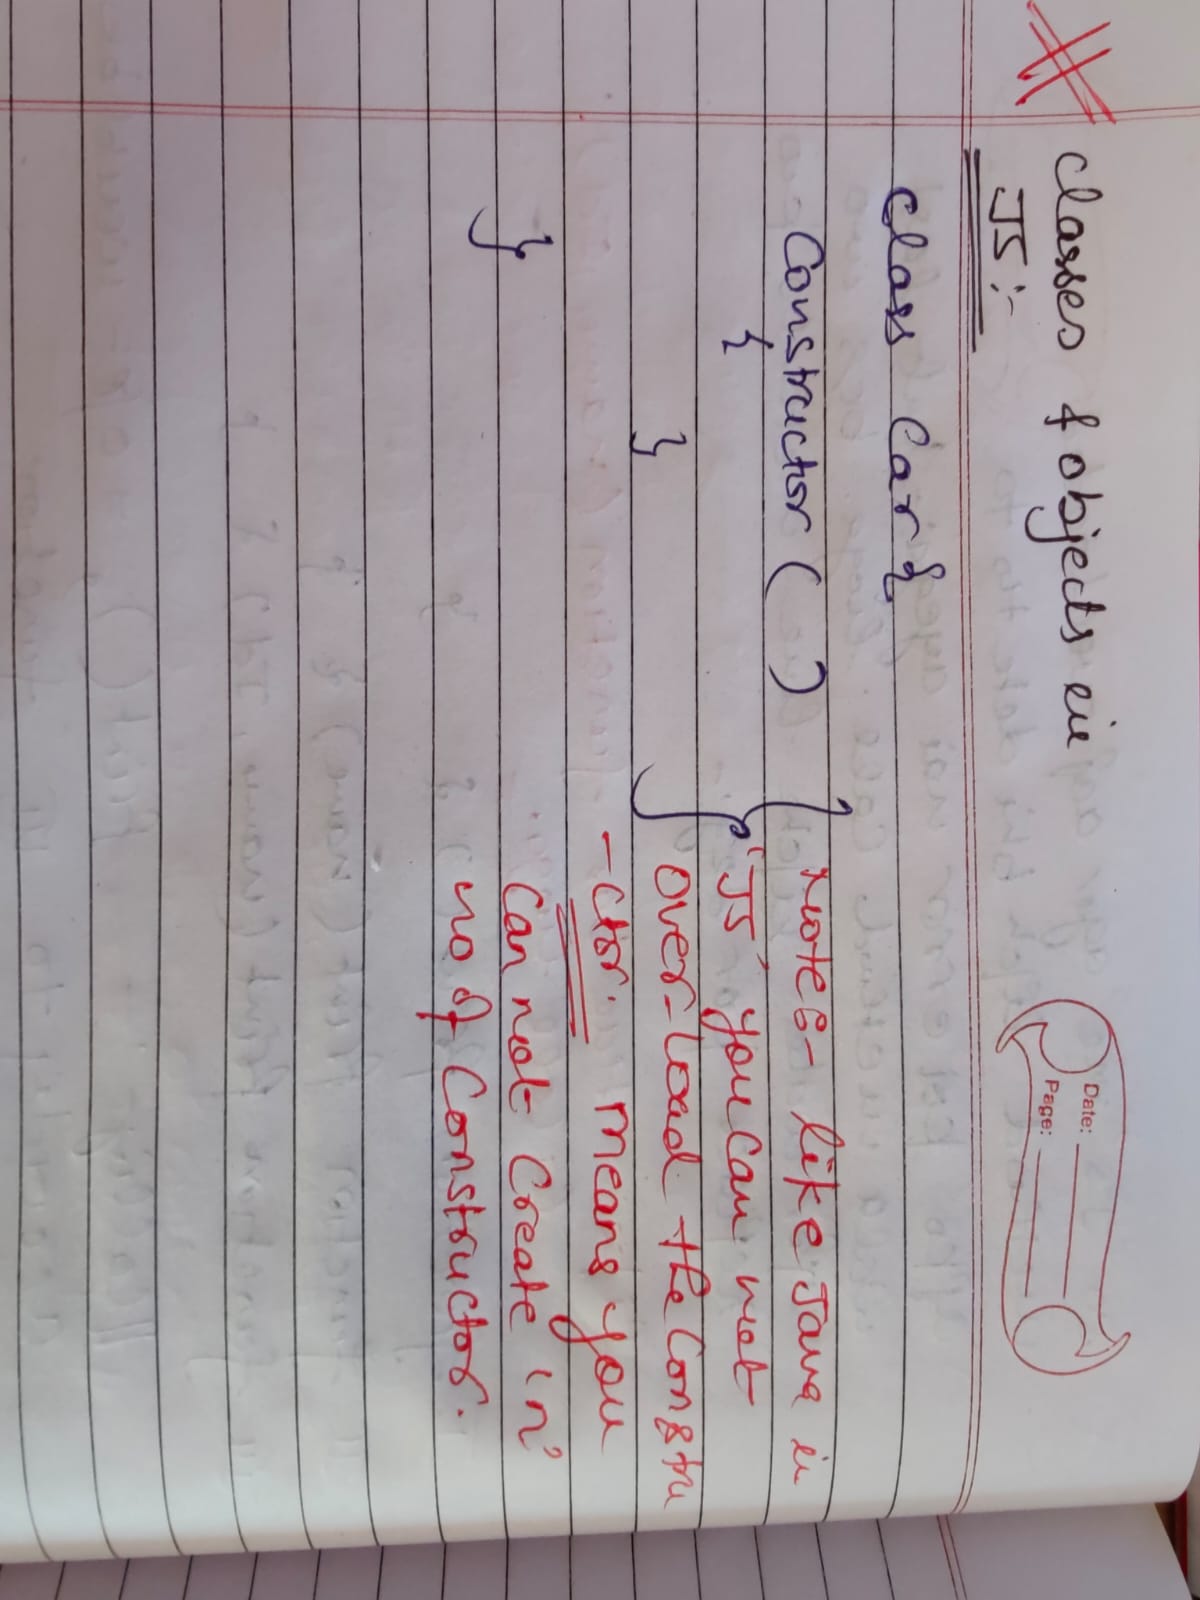 Date:
Page:
classes & objects in
JS :-
class Car {
Constructor ( )
{
}
}
Note:- like Java in
'JS' you can not
over-load the Constru
-ctor. means you
can not create 'n'
no of Constructor.